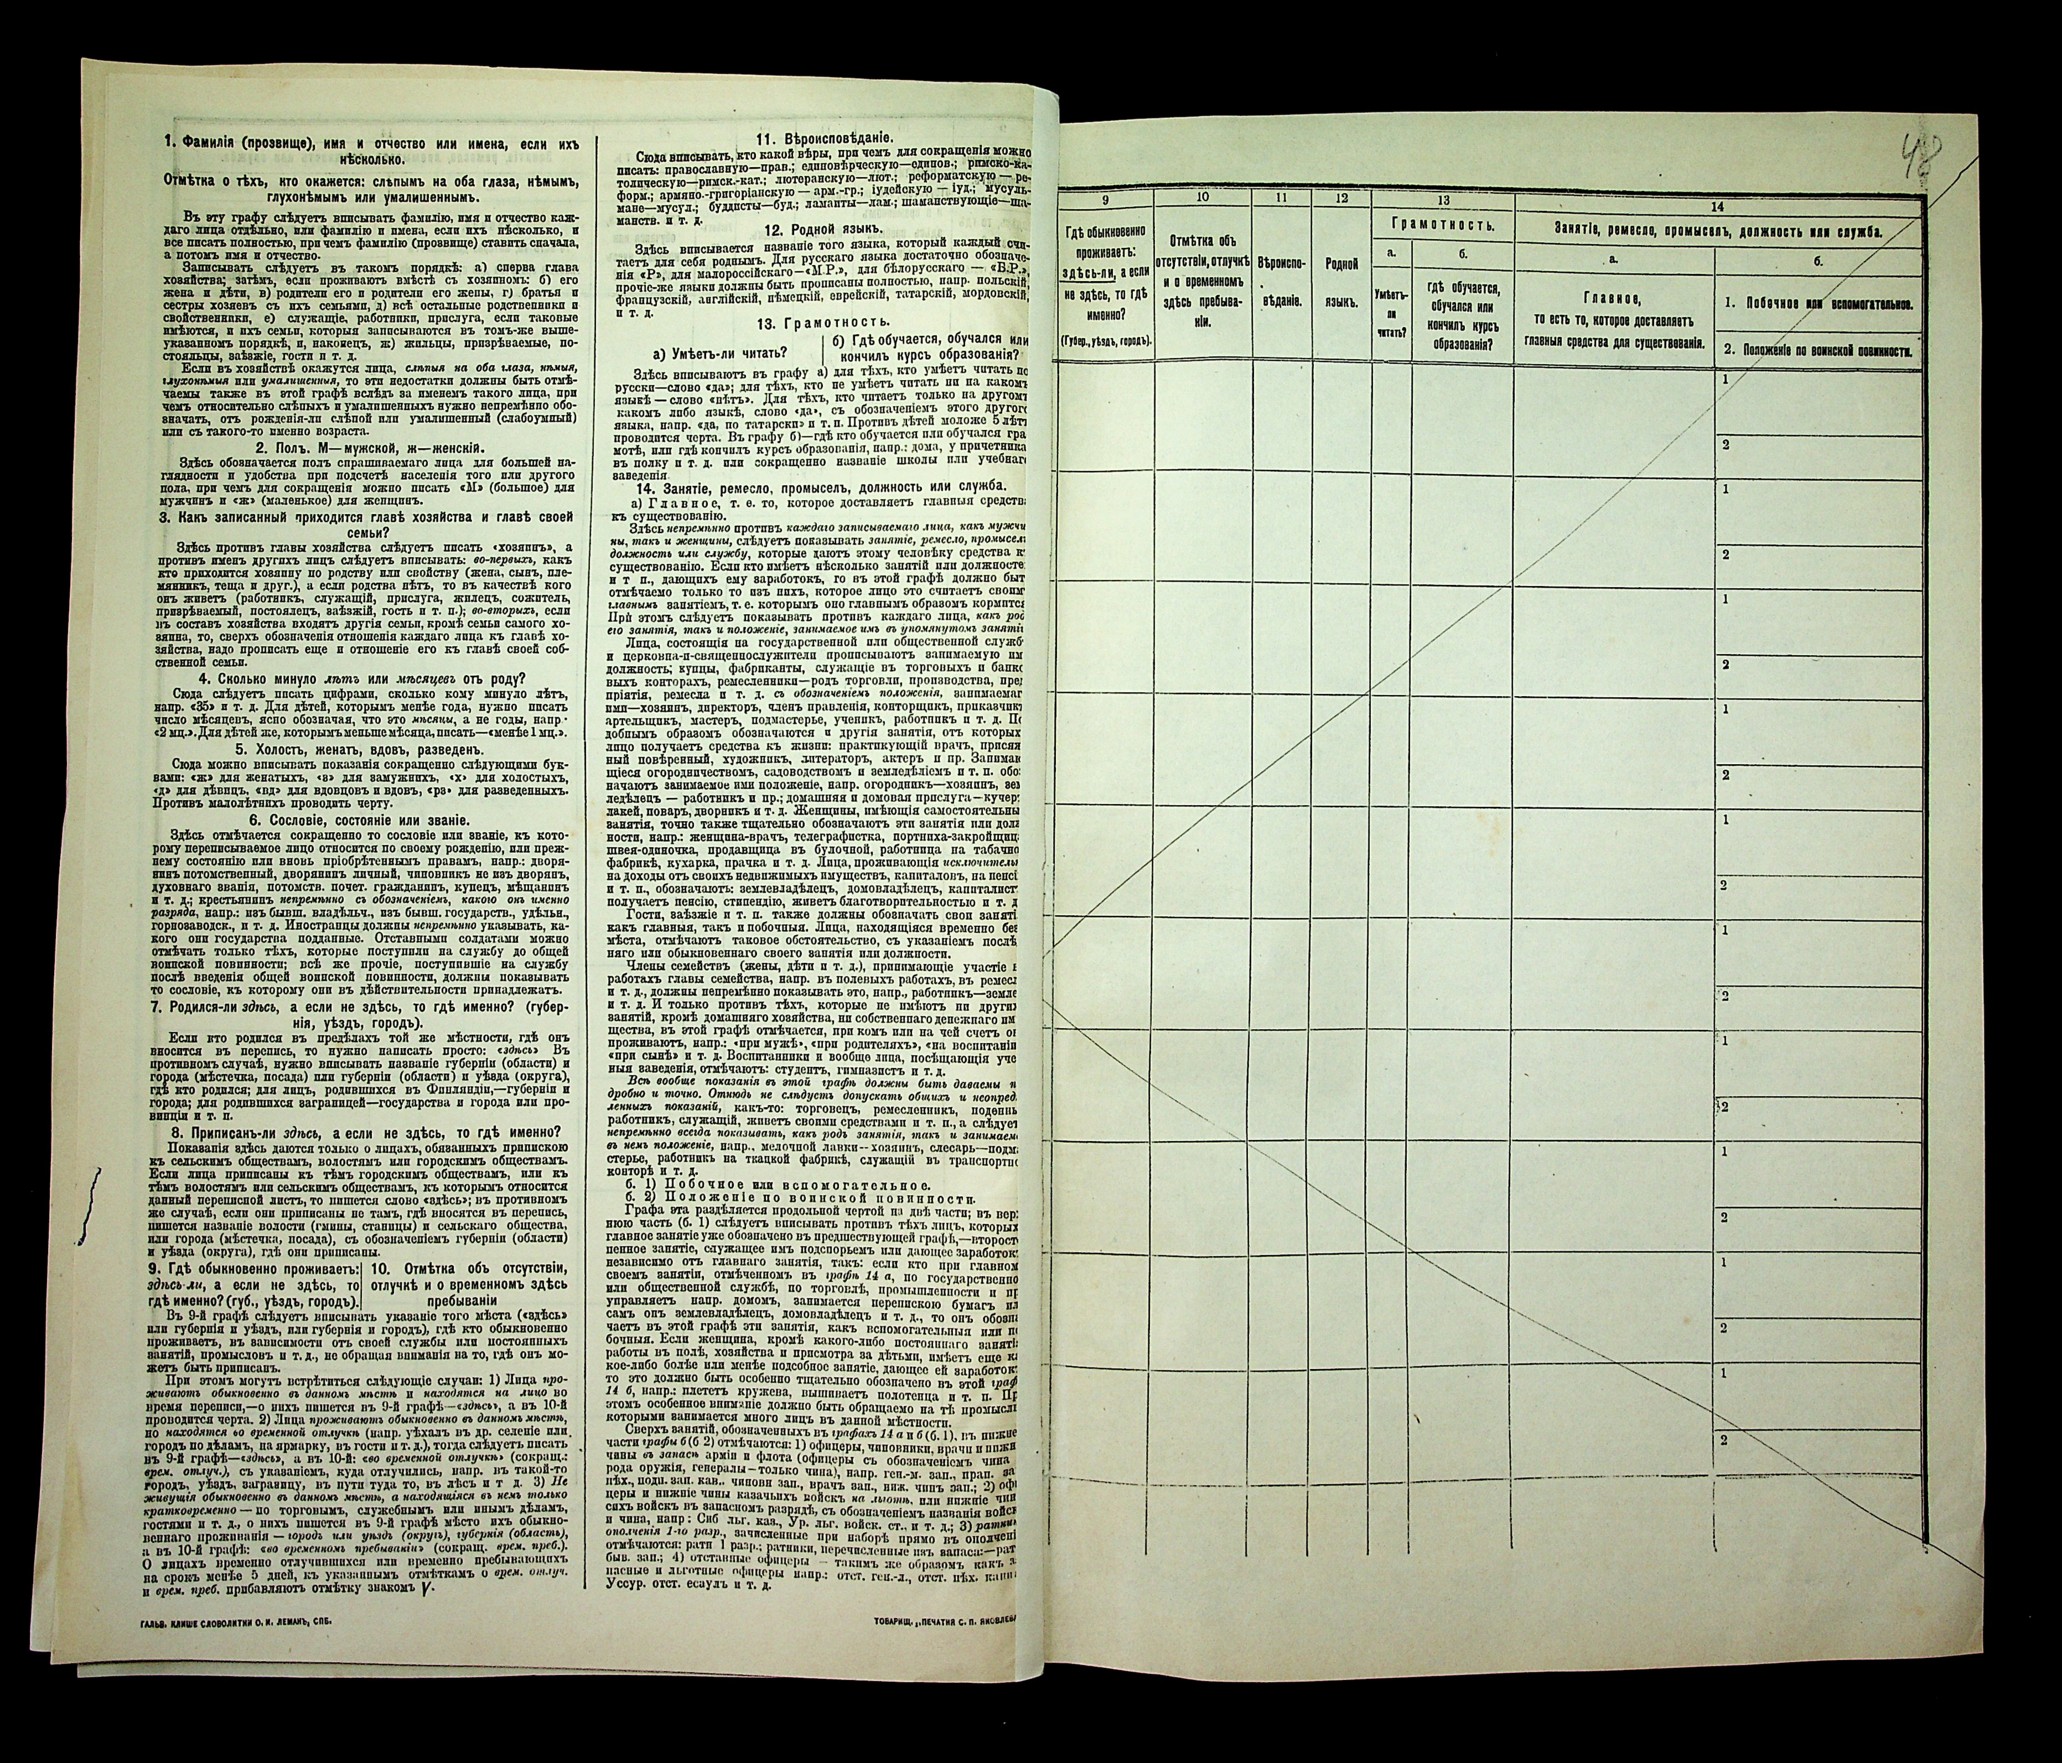 1. Фамилія (прозвище), имя и отчество или имена, если ихъ
нѣсколько.
Отмѣтка о тѣхъ, кто окажется: слѣпымъ на оба глаза, нѣмымъ,
глухонѣмымъ или умалишеннымъ.
Въ эту графу слѣдуетъ вписывать фамилію, имя и отчество каж-
даго лица отдѣльно, или фамилію и имена, если ихъ нѣсколько, и
все писать полностью, при чемъ фамилію (прозвище) ставить сначала,
а потомъ имя и отчество.
Записывать слѣдуетъ въ такомъ порядкѣ: а) сперва глава
хозяйства; затѣмъ, если проживаютъ вмѣстѣ съ хозяиномъ: б) его
жена и дѣти, в) родители его и родители его жены, г) братья и
сестры хозяевъ съ ихъ семьями, д) всѣ остальные родственники и
свойственники, е) служащіе, работники, прислуга, если таковые
имѣются, и ихъ семьи, которыя записываются въ томъ-же выше-
указанномъ порядкѣ, и, наконецъ, ж) жильцы, призрѣваемые, по-
стояльцы, заѣзжіе, гости и т. д.
Если въ хозяйствѣ окажутся лица, слѣпыя на оба глаза, нѣмыя,
глухонѣмыя или умалишенныя, то эти недостатки должны быть отмѣ-
чаемы также въ этой графѣ вслѣдъ за именемъ такого лица, при
чемъ относительно слѣпыхъ и умалишенныхъ нужно непремѣнно обо-
значать, отъ рожденія-ли слѣпой или умалишенный (слабоумный)
или съ такого-то именно возраста.
2. Полъ. М—мужской, ж—женскій.
Здѣсь обозначается полъ спрашиваемаго лица для большей на-
глядности и удобства при подсчетѣ населенія того или другого
пола, при чемъ для сокращенія можно писать «М» (большое) для
мужчинъ и «ж» (маленькое) для женщинъ.
3. Какъ записанный приходится главѣ хозяйства и главѣ своей
семьи?
Здѣсь противъ главы хозяйства слѣдуетъ писать «хозяинъ», а
противъ именъ другихъ лицъ слѣдуетъ вписывать: во-первыхъ, какъ
кто приходится хозяину по родству или свойству (жена, сынъ, пле-
мянникъ, теща и друг.), а если родства нѣтъ, то въ качествѣ кого
онъ живетъ (работникъ, служащій, прислуга, жилецъ, сожитель,
призрѣваемый, постоялецъ, заѣзжій, гость и т. п.); во-вторыхъ, если
въ составъ хозяйства входятъ другія семьи, кромѣ семьи самого хо-
зяина, то, сверхъ обозначенія отношенія каждаго лица къ главѣ хо-
зяйства, надо прописать еще и отношеніе его къ главѣ своей соб-
ственной семьи.
4. Сколько минуло лѣтъ или мѣсяцевъ отъ роду?
Сюда слѣдуетъ писать цифрами, сколько кому минуло лѣтъ,
напр. «35» и т. д. Для дѣтей, которымъ менѣе года, нужно писать
число мѣсяцевъ, ясно обозначая, что это мѣсяцы, а не годы, напр.
«2 мц.». Для дѣтей же, которымъ меньше мѣсяца, писать—«менѣе 1 мц.».
5. Холостъ, женатъ, вдовъ, разведенъ.
Сюда можно вписывать показанія сокращенно слѣдующими бук-
вами: «ж» для женатыхъ, «з» для замужнихъ, «х» для холостыхъ,
«д» для дѣвицъ, «вд» для вдовцовъ и вдовъ, «рз» для разведенныхъ.
Противъ малолѣтнихъ проводить черту.
6. Сословіе, состояніе или званіе.
Здѣсь отмѣчается сокращенно то сословіе или званіе, къ кото-
рому переписываемое лицо относится по своему рожденію, или преж-
нему состоянію или вновь пріобрѣтеннымъ правамъ, напр.: дворя-
нинъ потомственный, дворянинъ личный, чиновникъ не изъ дворянъ,
духовнаго званія, потомств. почет. гражданинъ, купецъ, мѣщанинъ
и т. д.; крестьянинъ непремѣнно съ обозначеніемъ, какого онъ именно
разряда, напр.: изъ бывш. владѣльч., изъ бывш. государств., удѣльн.,
горнозаводск., и т. д. Иностранцы должны непремѣнно указывать, ка-
кого они государства подданные. Отставными солдатами можно
отмѣчать только тѣхъ, которые поступили на службу до общей
воинской повинности; всѣ же прочіе, поступившіе на службу
послѣ введенія общей воинской повинности, должны показывать
то сословіе, къ которому они въ дѣйствительности принадлежатъ.
7. Родился-ли здѣсь, а если не здѣсь, то гдѣ именно? (губер-
нія, уѣздъ, городъ).
Если кто родился въ предѣлахъ той же мѣстности, гдѣ онъ
вносится въ перепись, то нужно написать просто: «здѣсь» Въ
противномъ случаѣ, нужно вписывать названіе губерніи (области) и
города (мѣстечка, посада) или губерніи (области) и уѣзда (округа),
гдѣ кто родился; для лицъ, родившихся въ Финляндіи,—губерніи и
города; для родившихся заграницей—государства и города или про-
винціи и т. п.
8. Приписанъ-ли здѣсь, а если не здѣсь, то гдѣ именно?
Показанія здѣсь даются только о лицахъ, обязанныхъ припискою
къ сельскимъ обществамъ, волостямъ или городскимъ обществамъ.
Если лица приписаны къ тѣмъ городскимъ обществамъ, или къ
тѣмъ волостямъ или сельскимъ обществамъ, къ которымъ относится
данный переписной листъ, то пишется слово «здѣсь»; въ противномъ
же случаѣ, если они приписаны не тамъ, гдѣ вносятся въ перепись,
пишется названіе волости (гмины, станицы) и сельскаго общества,
или города (мѣстечка, посада), съ обозначеніемъ губерніи (области)
и уѣзда (округа), гдѣ они приписаны.
9. Гдѣ обыкновенно проживаетъ:
здѣсь-ли, а если не здѣсь, то
гдѣ именно? (губ., уѣздъ, городъ).
10. Отмѣтка объ отсутствіи,
отлучкѣ и о временномъ здѣсь
пребываніи
Въ 9-й графѣ слѣдуетъ вписывать указаніе того мѣста («здѣсь»
или губернія и уѣздъ, или губернія и городъ), гдѣ кто обыкновенно
проживаетъ, въ зависимости отъ своей службы или постоянныхъ
занятій, промысловъ и т. д., не обращая вниманія на то, гдѣ онъ мо-
жетъ быть приписанъ.
При этомъ могутъ встрѣтиться слѣдующіе случаи: 1) Лица про-
живаютъ обыкновенно въ данномъ мѣстѣ и находятся на лицо во
время переписи,—о нихъ пишется въ 9-й графѣ—«здѣсь», а въ 10-й
проводится черта. 2) Лица проживаютъ обыкновенно въ данномъ мѣстѣ,
но находятся во временной отлучкѣ (напр. уѣхалъ въ др. селеніе или
городъ по дѣламъ, на ярмарку, въ гости и т. д.), тогда слѣдуетъ писать
въ 9-й графѣ—«здѣсь», а въ 10-й: «во временной отлучкѣ» (сокращ.:
врем. отлуч.), съ указаніемъ, куда отлучились, напр. въ такой-то
городъ, уѣздъ, заграницу, въ пути туда то, въ лѣсъ и т д. 3) Не
живущія обыкновенно въ данномъ мѣстѣ, а находящіяся въ немъ только
кратковременно — по торговымъ, служебнымъ или инымъ дѣламъ,
гостями и т. д., о нихъ пишется въ 9-й графѣ мѣсто ихъ обыкно-
веннаго проживанія — городъ или уѣздъ (округъ), губернія (область),
а въ 10-й графѣ: «во временномъ пребываніи» (сокращ. врем. преб.).
О лицахъ временно отлучившихся или временно пребывающихъ
на срокъ менѣе 5 дней, къ указаннымъ отмѣткамъ о врем. отлуч.
и врем. преб. прибавляютъ отмѣтку знакомъ V.
ГАЛЬВ. КЛИШЕ СЛОВОЛИТНИ О. И. ЛЕМАНЪ, СПБ.
11. Вѣроисповѣданіе.
Сюда вписывать, кто какой вѣры, при чемъ для сокращенія можно
писать: православную—прав.; единовѣрческую—единов.; римско-ка-
толическую—римск.-кат.; лютеранскую—лют.; реформатскую — ре-
форм.; армяно-григоріанскую — арм.-гр.; іудейскую — іуд.; мусуль-
мане—мусул.; буддисты—буд.; ламаиты—лам.; шаманствующіе—ша-
манств. и т. д.
12. Родной языкъ.
Здѣсь вписывается названіе того языка, который каждый счи-
таетъ для себя роднымъ. Для русскаго языка достаточно обозначе-
нія «Р», для малороссійскаго—«М.Р.», для бѣлорусскаго — «Б.Р.»,
прочіе-же языки должны быть прописаны полностью, напр. польскій,
французскій, англійскій, нѣмецкій, еврейскій, татарскій, мордовскій,
и т. д.
13. Грамотность.
а) Умѣетъ-ли читать?
б) Гдѣ обучается, обучался или
кончилъ курсъ образованія?
Здѣсь вписываютъ въ графу а) для тѣхъ, кто умѣетъ читать по
русски—слово «да»; для тѣхъ, кто не умѣетъ читать ни на какомъ
языкѣ — слово «нѣтъ». Для тѣхъ, кто читаетъ только на другомъ
какомъ либо языкѣ, слово «да», съ обозначеніемъ этого другого
языка, напр. «да, по татарски» и т. п. Противъ дѣтей моложе 5 лѣтъ
проводится черта. Въ графу б)—гдѣ кто обучается или обучался гра
мотѣ, или гдѣ кончилъ курсъ образованія, напр.: дома, у причетника
въ полку и т. д. или сокращенно названіе школы или учебнаг
заведенія
14. Занятіе, ремесло, промыселъ, должность или служба.
а) Главное, т. е. то, которое доставляетъ главныя средств
къ существованію.
Здѣсь непремѣнно противъ каждаго записываемаго лица, какъ мужчи
ны, такъ и женщины, слѣдуетъ показывать занятіе, ремесло, промысел
должность или службу, которые даютъ этому человѣку средства к
существованію. Если кто имѣетъ нѣсколько занятій или должносте
и т п., дающихъ ему заработокъ, то въ этой графѣ должно быт
отмѣчаемо только то изъ нихъ, которое лицо это считаетъ своим
главнымъ занятіемъ, т. е. которымъ оно главнымъ образомъ кормитс
При этомъ слѣдуетъ показывать противъ каждаго лица, какъ род
его занятія, такъ и положеніе, занимаемое имъ въ упомянутомъ заняти
Лица, состоящія на государственной или общественной служб
и церковно-и-священнослужители прописываютъ занимаемую им
должность; купцы, фабриканты, служащіе въ торговыхъ и банко
выхъ конторахъ, ремесленники—родъ торговли, производства, пред
пріятія, ремесла и т. д. съ обозначеніемъ положенія, занимаемаг
ими—хозяинъ, директоръ, членъ правленія, конторщикъ, приказчик
артельщикъ, мастеръ, подмастерье, ученикъ, работникъ и т. д. По
добнымъ образомъ обозначаются и другія занятія, отъ которых
лицо получаетъ средства къ жизни: практикующій врачъ, присяж
ный повѣренный, художникъ, литераторъ, актеръ и пр. Занимаю
щіеся огородничествомъ, садоводствомъ и земледѣліемъ и т. п. обоз
начаютъ занимаемое ими положеніе, напр. огородникъ—хозяинъ, зем
ледѣлецъ — работникъ и пр.; домашняя и домовая прислуга—кучер
лакей, поваръ, дворникъ и т. д. Женщины, имѣющія самостоятельны
занятія, точно также тщательно обозначаютъ эти занятія или долж
ности, напр.: женщина-врачъ, телеграфистка, портниха-закройщиц
швея-одиночка, продавщица въ булочной, работница на табачно
фабрикѣ, кухарка, прачка и т. д. Лица, проживающія исключительн
на доходы отъ своихъ недвижимыхъ имуществъ, капиталовъ, на пенсі
и т. п., обозначаютъ: землевладѣлецъ, домовладѣлецъ, капиталист
получаетъ пенсію, стипендію, живетъ благотворительностью и т. д
Гости, заѣзжіе и т. п. также должны обозначать свои заняті
какъ главныя, такъ и побочныя. Лица, находящіяся временно без
мѣста, отмѣчаютъ таковое обстоятельство, съ указаніемъ послѣд
няго или обыкновеннаго своего занятія или должности.
Члены семействъ (жены, дѣти и т. д.), принимающіе участіе в
работахъ главы семейства, напр. въ полевыхъ работахъ, въ ремесл
и т. д., должны непремѣнно показывать это, напр., работникъ—земле
и т. д. И только противъ тѣхъ, которые не имѣютъ ни других
занятій, кромѣ домашняго хозяйства, ни собственнаго денежнаго им
щества, въ этой графѣ отмѣчается, при комъ или на чей счетъ он
проживаютъ, напр.: «при мужѣ», «при родителяхъ», «на воспитаніи
«при сынѣ» и т. д. Воспитанники и вообще лица, посѣщающія уче
ныя заведенія, отмѣчаютъ: студентъ, гимназистъ и т. д.
Всѣ вообще показанія въ этой графѣ должны быть даваемы п
дробно и точно. Отнюдь не слѣдуетъ допускать общихъ и неопред
ленныхъ показаній, какъ-то: торговецъ, ремесленникъ, поденны
работникъ, служащій, живетъ своими средствами и т. п., а слѣдует
непремѣнно всегда показывать, какъ родъ занятія, такъ и занимаем
въ немъ положеніе, напр., мелочной лавки—хозяинъ, слесарь—подм
стерье, работникъ на ткацкой фабрикѣ, служащій въ транспортно
конторѣ и т. д.
б. 1) Побочное или вспомогательное.
б. 2) Положеніе по воинской повинности.
Графа эта раздѣляется продольной чертой на двѣ части; въ вер
нюю часть (б. 1) слѣдуетъ вписывать противъ тѣхъ лицъ, которых
главное занятіе уже обозначено въ предшествующей графѣ,—второст
пенное занятіе, служащее имъ подспорьемъ или дающее заработок
независимо отъ главнаго занятія, такъ: если кто при главном
своемъ занятіи, отмѣченномъ въ графѣ 14 а, по государственно
или общественной службѣ, по торговлѣ, промышленности и пр
управляетъ напр. домомъ, занимается перепискою бумагъ ил
самъ онъ землевладѣлецъ, домовладѣлецъ и т. д., то онъ обозн
чаетъ въ этой графѣ эти занятія, какъ вспомогательныя или по
бочныя. Если женщина, кромѣ какого-либо постояннаго заняті
работы въ полѣ, хозяйства и присмотра за дѣтьми, имѣетъ еще ка
кое-либо болѣе или менѣе подсобное занятіе, дающее ей заработок
то это должно быть особенно тщательно обозначено въ этой граф
14 б, напр.: плететъ кружева, вышиваетъ полотенца и т. п. Пр
этомъ особенное вниманіе должно быть обращаемо на тѣ промысл
которыми занимается много лицъ въ данной мѣстности.
Сверхъ занятій, обозначенныхъ въ графахъ 14 а и б (б. 1), въ нижне
части графы б (б 2) отмѣчаются: 1) офицеры, чиновники, врачи и нижн
чины въ запасѣ арміи и флота (офицеры съ обозначеніемъ чина
рода оружія, генералы—только чина), напр. ген.-м. зап., прап. за
пѣх., подп. зап. кав., чиновн зап., врачъ зап., ниж. чинъ зап.; 2) офи
церы и нижніе чины казачьихъ войскъ на льготѣ, или нижніе чин
сихъ войскъ въ запасномъ разрядѣ, съ обозначеніемъ названія войск
и чина, напр: Сиб льг. каз., Ур. льг. войск. ст., и т. д.; 3) ратник
ополченія 1-го разр., зачисленные при наборѣ прямо въ ополчені
отмѣчаются: ратн 1 разр.; ратники, перечисленные изъ запаса:—рат
быв. зап.; 4) отставные офицеры — такимъ же образомъ какъ з
пасные и льготные офицеры напр.: отст. ген.-л., отст. пѣх. капи
Уссур. отст. есаулъ и т. д.
ТОВАРИЩ. „ПЕЧАТНЯ С. П. ЯКОВЛЕВА
48
9
10
11
12
13
14
Гдѣ обыкновенно
проживаетъ:
здѣсь-ли, а если
не здѣсь, то гдѣ
именно?
(Губер., уѣздъ, городъ).
Отмѣтка объ
отсутствіи, отлучкѣ
и о временномъ
здѣсь пребыва-
ніи.
Вѣроиспо-
вѣданіе.
Родной
языкъ.
Грамотность.
а.
Умѣетъ-
ли
читать?
б.
гдѣ обучается,
обучался или
кончилъ курсъ
образованія?
Занятіе, ремесло, промыселъ, должность или служба.
а.
Главное,
то есть то, которое доставляетъ
главныя средства для существованія.
б.
1. Побочное или вспомогательное.
2. Положеніе по воинской повинности.
1
2
1
2
1
2
1
2
1
2
1
2
1
2
1
2
1
2
1
2